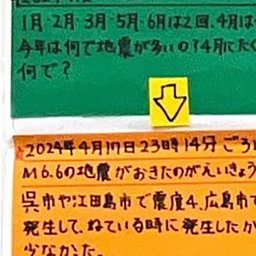 1月・2月・3月・5月・6月は2回、4月は
今年は何で地震が多いの?4月にたく
何で?
2024年4月17日23時14分ごろ
M6.6の地震がおきたのがえいきょう
呉市や江田島市で震度4、広島市で
発生して、ねている時に発生したか
少なかった。